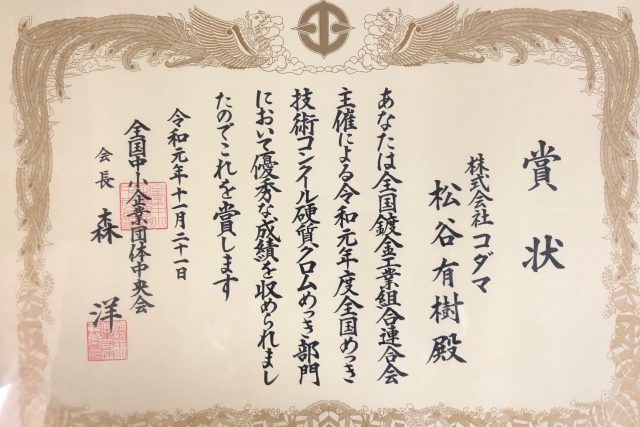 賞状
株式会社コダマ
松谷有樹殿
あなたは全国鍍金工業組合連合会
主催による令和元年度全国めっき
技術コンクール硬質クロムめっき部門
において優秀な成績を収められまし
たのでこれを賞します
令和元年十一月二十一日
全国中小企業団体中央会
会長 森 洋